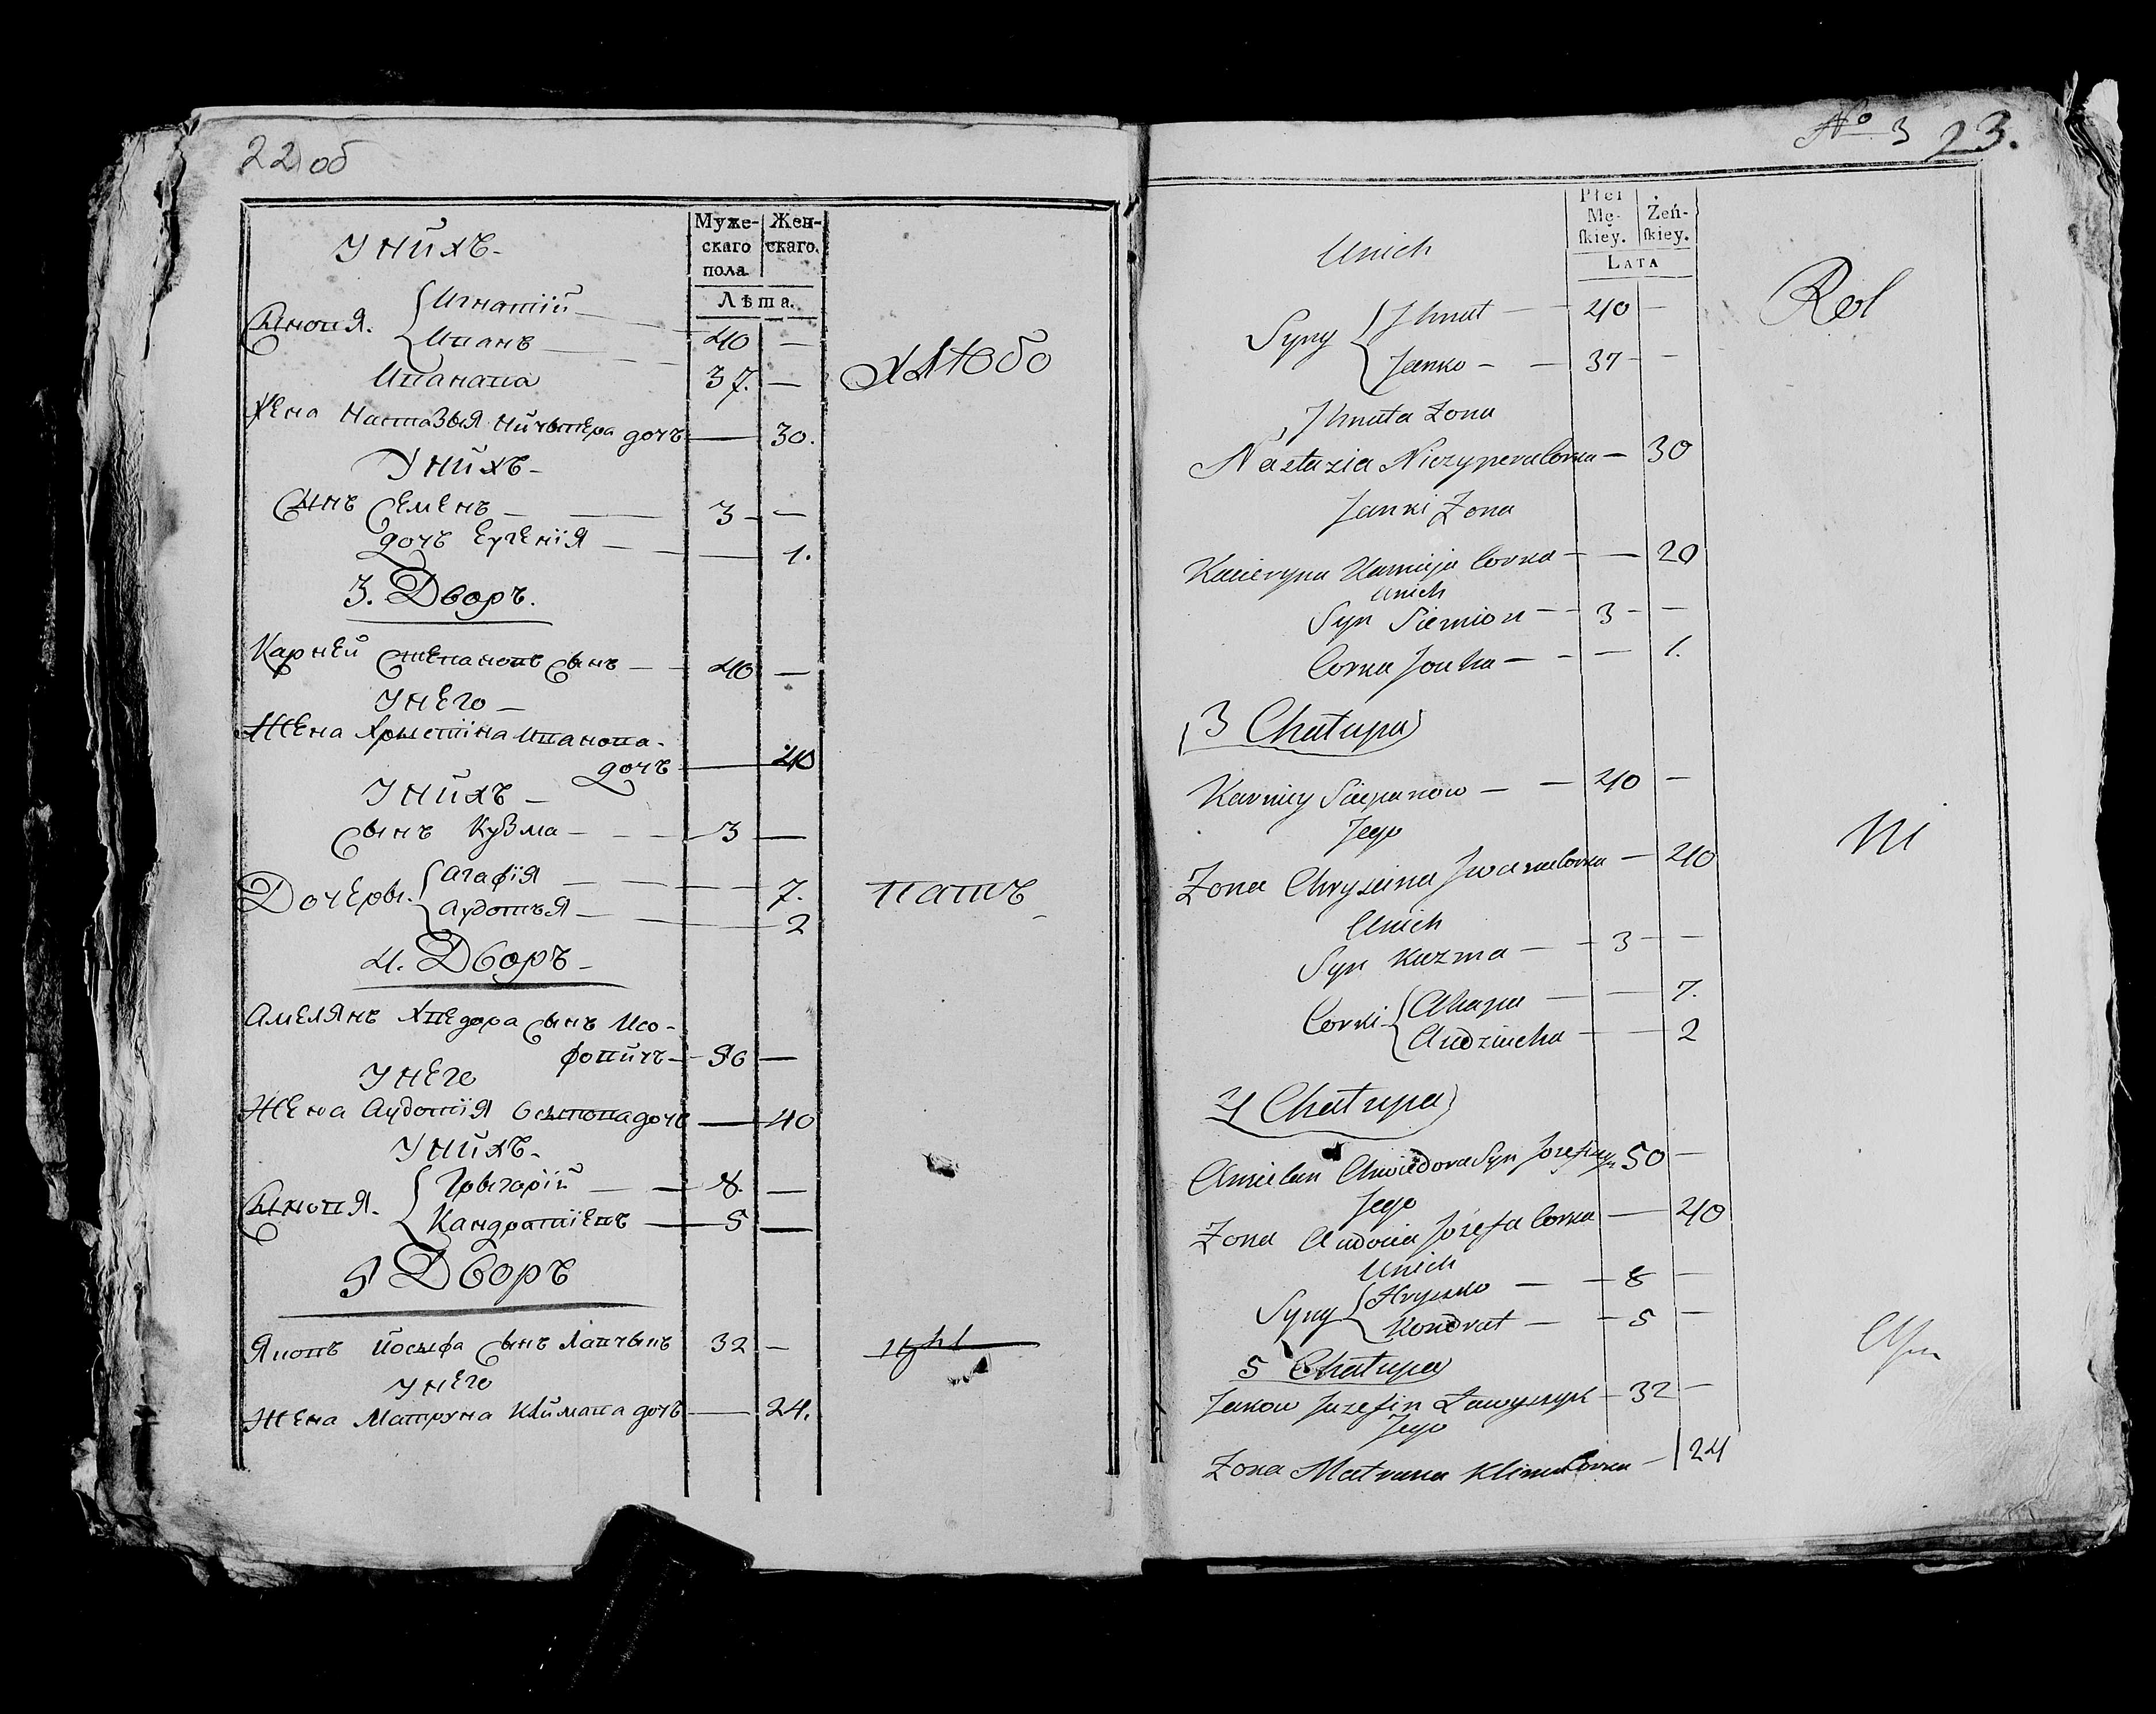 22 об
Мужескаго пола
Женскаго.
Лѣта.
У нихъ -
Сыновя.
Игнатій — 40 —
Иванъ — 37. —
Ивана­ва
Жена Настазья Ничыпера дочъ — 30.
хлѣбо
У нихъ -
Сынъ Семенъ — 3 —
дочъ Еугенія — 1.
3. Дворъ.
Карней Степановъ сынъ — 40 —
У него —
Жена Хрыстіна Иванова
дочъ — 40
У нихъ —
Сынъ Кузма — 3 —
Дочеры.
Агафія — 7.
Аудотья — 2
пашъ
4. Дворъ -
Амелянъ Хведора сынъ Изо-
фовичъ — 50 —
У него
Жена Аудотія Осыпова дочъ — 40
У нихъ -
Сыновя.
Грыгорій — 8. —
Кандратіевъ — 5 —
5 Дворъ
Яковъ Йосыфа сынъ Лавчынъ 32 —
У него
Жена Матруна Климава дочъ — 24.
№ 3 23.
Płci Mę-ſkiey.
Żeń-ſkiey.
LATA
Unich
Syny
Jhnat — 40 —
Janko — 37 —
Rol
Jhnata Zona
Nastazia Niczypera Corka — 30
Janki Zona
Kacieryna Karnieja Corka — 20
Unich
Syn Siemion — 3 —
Corka Jouha — 1.
3 Chałupa
Karniey Sciepanow — 40 —
Jego
Zona Chryscina Jwana Corka — 40
ni
Unich
Syn Kuzma — 3 —
Corki
Ahapa — 7.
Audziucha — 2
4 Chałupa
Amielan Chwiedora Syn Jozefin 50 —
Jego
Zona Audocia Józefa Corka — 40
Unich
Syny
Hryszko — 8 —
Kondrat — 5 —
5 Chałupa
Jakow Juzefin Ławyszyk — 32 —
Jego
Zona Matruna Klima Corka — 24